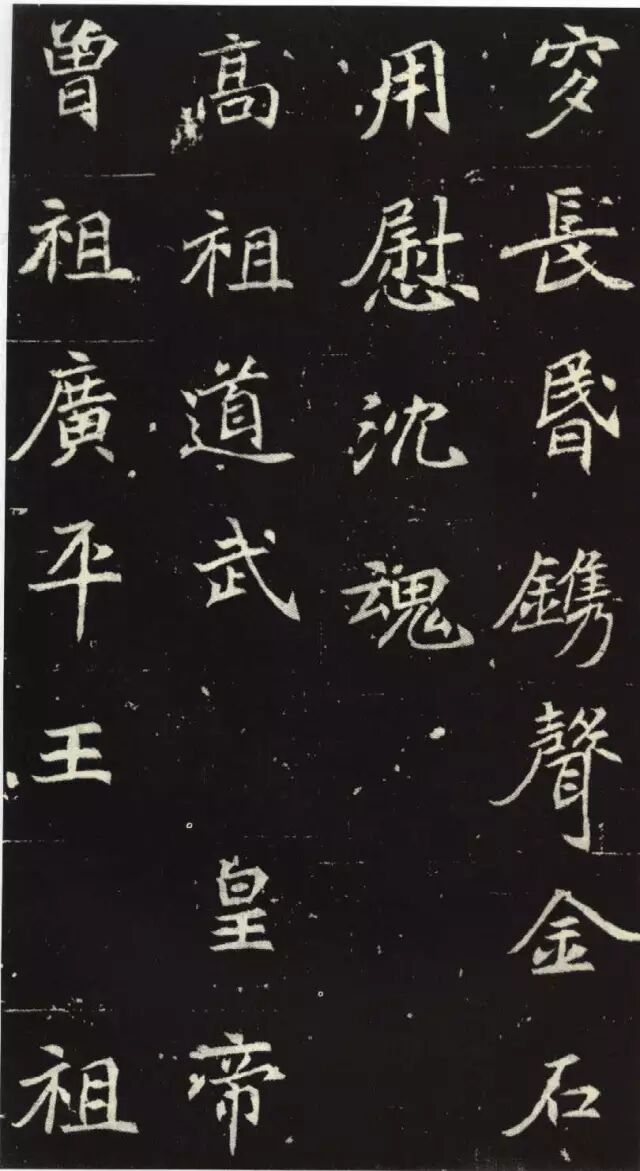 穸長昏鐫聲金石
用慰沈魂
高祖道武皇帝
曾祖廣平王祖